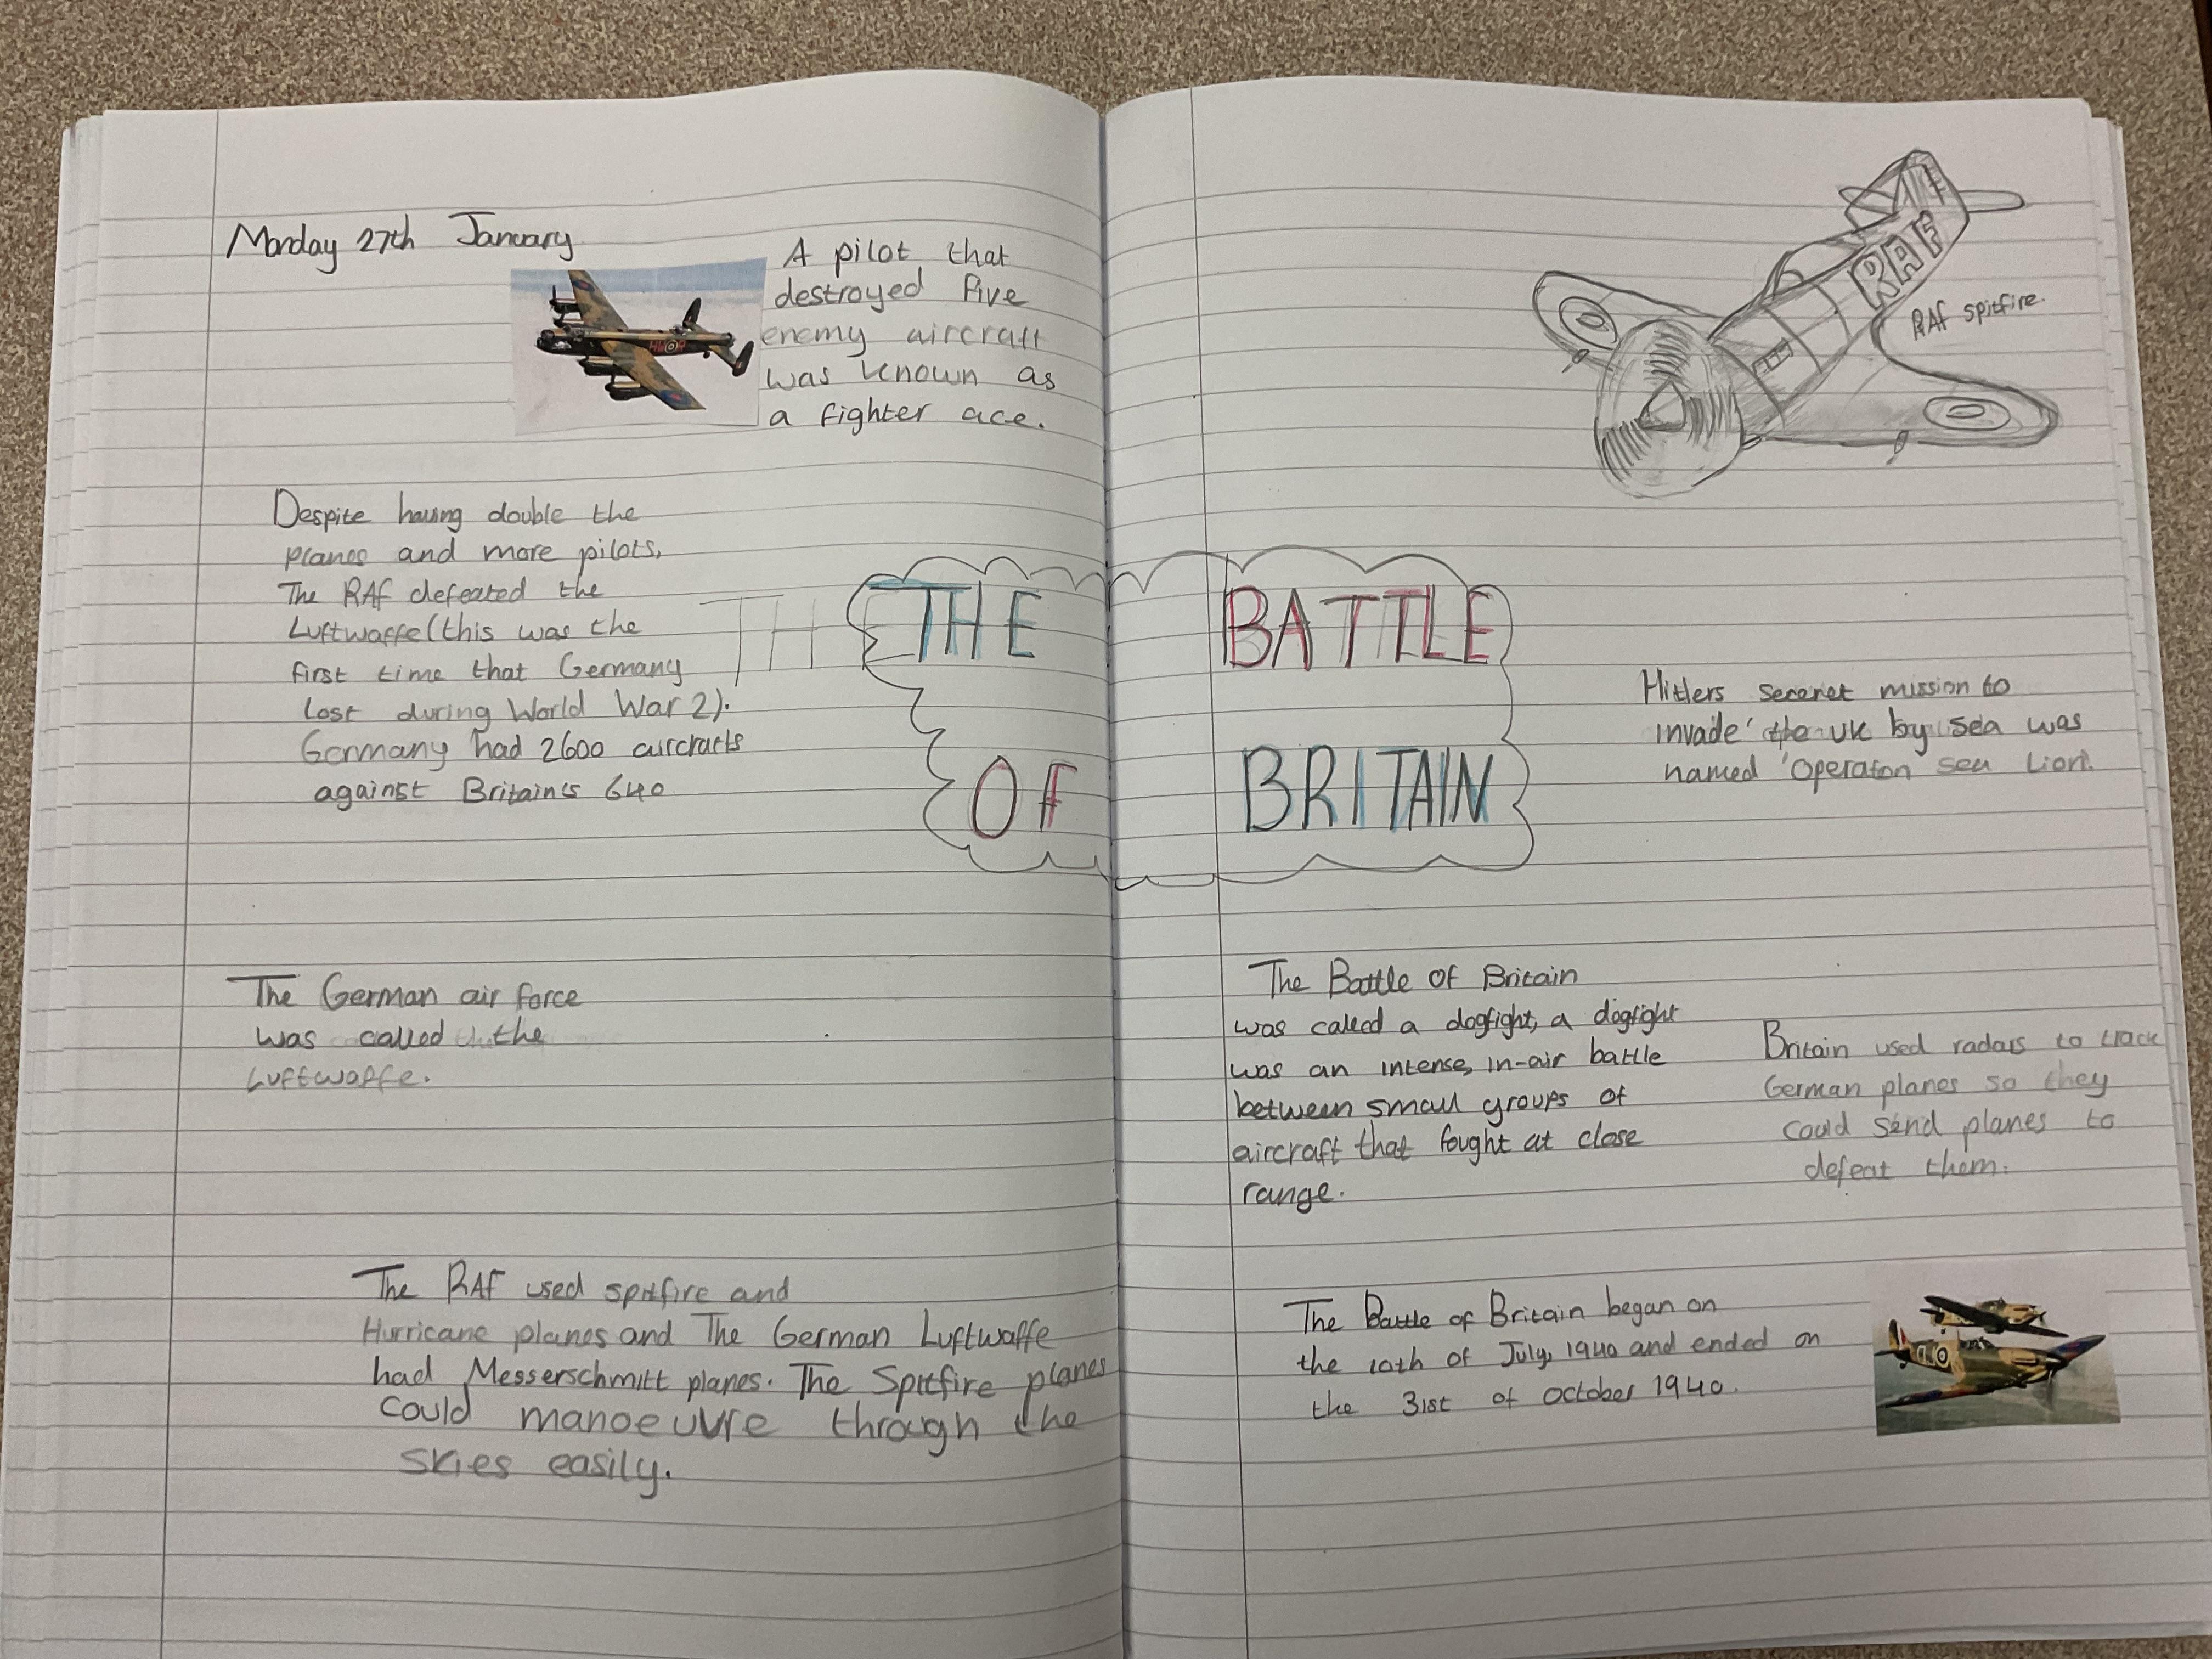 Monday 27th January
A pilot that
destroyed five
enemy aircraft
was known as
a fighter ace.
Despite having double the
planes and more pilots,
The RAF defeated the
Luftwaffe (this was the
first time that Germany
lost during World War 2).
Germany had 2600 aircrafts
against Britain's 640
TH
THE BATTLE
OF BRITAIN
The German air force
was called the
Luftwaffe.
The RAF used spitfire and
Hurricane planes and The German Luftwaffe
had Messerschmitt planes. The Spitfire planes
could manoeuvre through the
skies easily.
RAF
RAF spitfire.
Hitlers secret mission to
invade the UK by sea was
named 'Operaton sea Lion'.
The Battle of Britain
was called a dogfight, a dogfight
was an intense, in-air battle
between small groups of
aircraft that fought at close
range.
Britain used radars to track
German planes so they
could send planes to
defeat them.
The Battle of Britain began on
the 10th of July, 1940 and ended on
the 31st of October 1940.